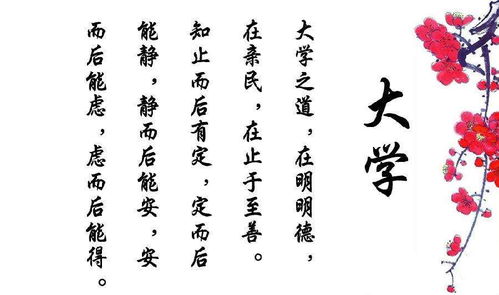 大学
大学之道，在明明德，
在亲民，在止于至善。
知止而后有定，定而后
能静，静而后能安，安
而后能虑，虑而后能得。